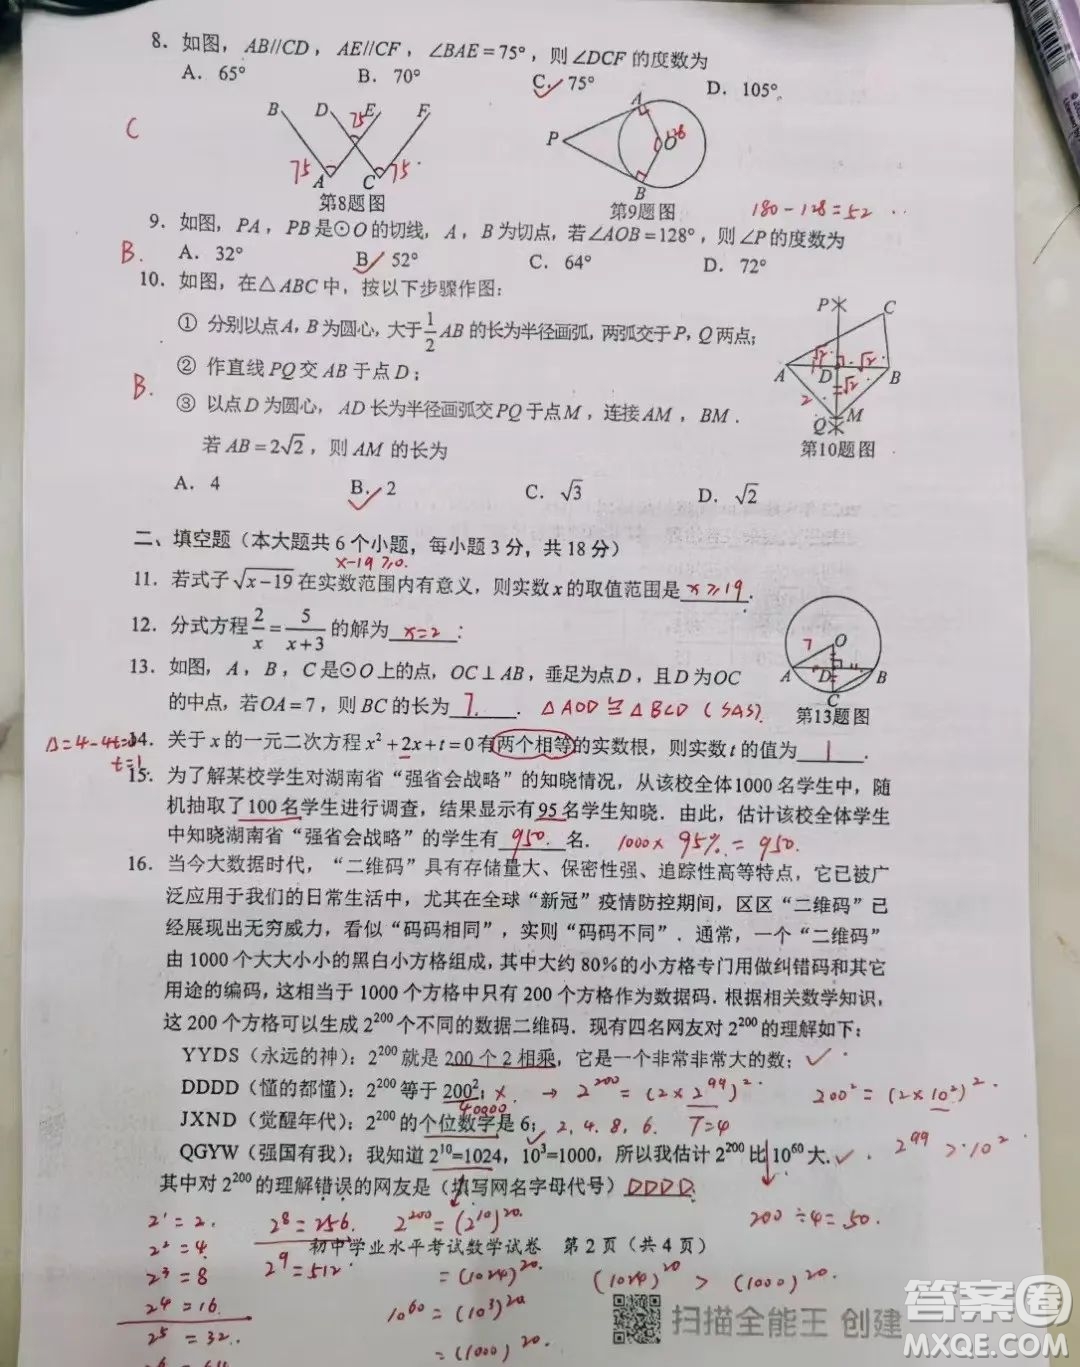 8．如图，AB//CD，AE//CF，∠BAE=75°，则∠DCF的度数为
A．65° B．70° C．75° D．105°
C
B D E F
75
75 75
A C
第8题图
A
P O 128
B
第9题图
180-128=52
9．如图，PA，PB是⊙O的切线，A，B为切点，若∠AOB=128°，则∠P的度数为
B. A．32° B．52° C．64° D．72°
10．如图，在△ABC中，按以下步骤作图：
① 分别以点A，B为圆心，大于1/2 AB的长为半径画弧，两弧交于P，Q两点；
② 作直线PQ交AB于点D；
B.
③ 以点D为圆心，AD长为半径画弧交PQ于点M，连接AM，BM．
若AB=2√2，则AM的长为
P C
√2 √2
A D B
2 √2
Q M
第10题图
A．4 B．2 C．√3 D．√2
二、填空题（本大题共6个小题，每小题3分，共18分）
x-19≥0.
11．若式子√(x-19)在实数范围内有意义，则实数x的取值范围是 x≥19．
12．分式方程2/x=5/(x+3)的解为 x=2．
13．如图，A，B，C是⊙O上的点，OC⊥AB，垂足为点D，且D为OC
的中点，若OA=7，则BC的长为 7． △AOD≌△BCD（SAS）.
7 O
A D B
C
第13题图
△=4-4t=0
t=1
14．关于x的一元二次方程x²+2x+t=0有两个相等的实数根，则实数t的值为 1．
15．为了解某校学生对湖南省“强省会战略”的知晓情况，从该校全体1000名学生中，随
机抽取了100名学生进行调查，结果显示有95名学生知晓．由此，估计该校全体学生
中知晓湖南省“强省会战略”的学生有 950. 名． 1000×95%=950.
16．当今大数据时代，“二维码”具有存储量大、保密性强、追踪性高等特点，它已被广
泛应用于我们的日常生活中，尤其在全球“新冠”疫情防控期间，区区“二维码”已
经展现出无穷威力，看似“码码相同”，实则“码码不同”．通常，一个“二维码”
由1000个大大小小的黑白小方格组成，其中大约80%的小方格专门用做纠错码和其它
用途的编码，这相当于1000个方格中只有200个方格作为数据码．根据相关数学知识，
这200个方格可以生成2²⁰⁰个不同的数据二维码．现有四名网友对2²⁰⁰的理解如下：
YYDS（永远的神）：2²⁰⁰就是200个2相乘，它是一个非常非常大的数； ✓
DDDD（懂的都懂）：2²⁰⁰等于200²； × → 2²⁰⁰=(2×2⁹⁹)². 200²=(2×10²)².
40000
JXND（觉醒年代）：2²⁰⁰的个位数字是6； ✓ 2，4．8，6． T=4
QGYW（强国有我）：我知道2¹⁰=1024，10³=1000，所以我估计2²⁰⁰比10⁶⁰大． ✓ 2⁹⁹>10²
其中对2²⁰⁰的理解错误的网友是（填写网名字母代号）DDDD．
200÷4=50.
2¹=2. 2⁸=256. 2²⁰⁰=(2¹⁰)²⁰.
2²=4. 初中学业水平考试数学试卷 第2页（共4页）
2³=8 2⁹=512. =(1024)²⁰. (1024)²⁰ > (1000)²⁰.
2⁴=16. 10⁶⁰=(10³)²⁰
2⁵=32. =(1000)²⁰.
扫描全能王 创建
答案圈
MXQE.COM